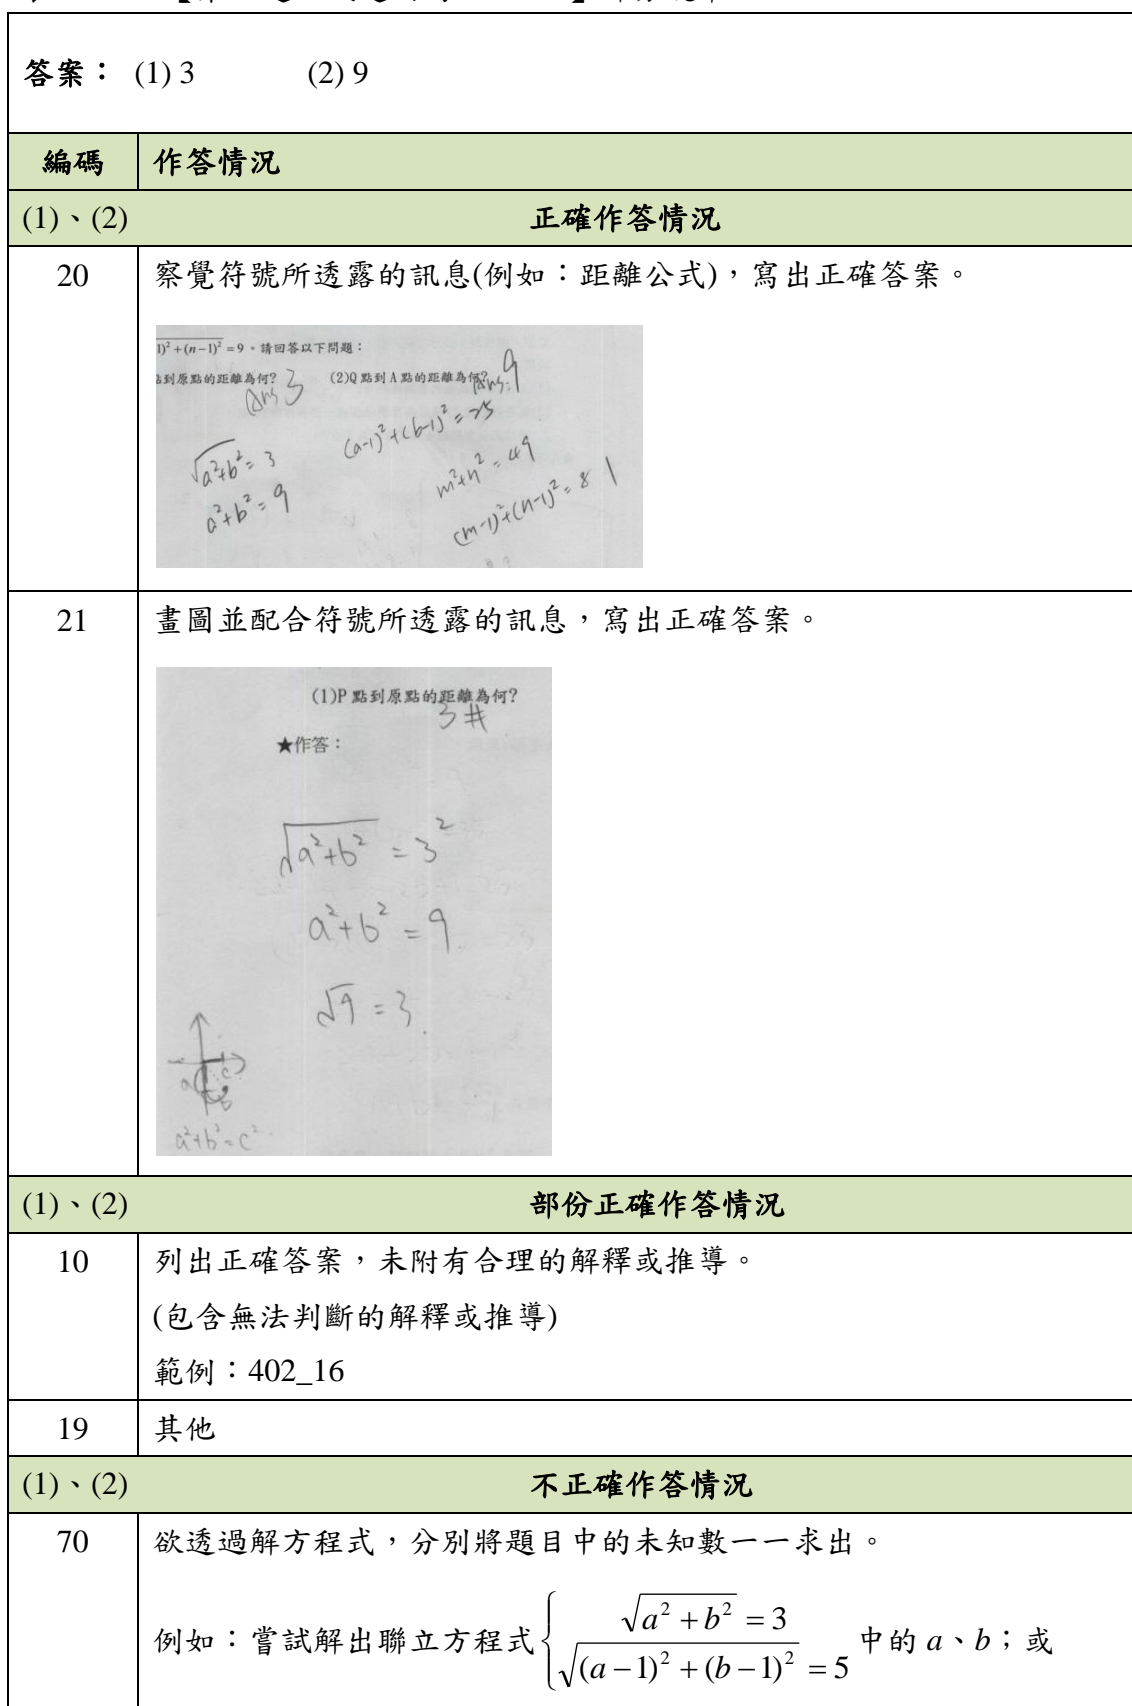 答案： (1) 3 (2) 9
編碼 作答情況
(1)、(2) 正確作答情況
20 察覺符號所透露的訊息(例如：距離公式)，寫出正確答案。
1)²+(n−1)² = 9。請回答以下問題：
到原點的距離為何? (2)Q 點到 A 點的距離為何?
Ans 3
Ans: 9
√(a²+b²) = 3
a²+b² = 9
(a-1)²+(b-1)² = 25
m²+n² = 49
(m-1)²+(n-1)² = 81
21 畫圖並配合符號所透露的訊息，寫出正確答案。
(1)P 點到原點的距離為何?
3 #
★作答：
√(a²+b²) = 3²
a²+b² = 9
√9 = 3
a
c
b
a²+b²=c²
(1)、(2) 部份正確作答情況
10 列出正確答案，未附有合理的解釋或推導。
(包含無法判斷的解釋或推導)
範例：402_16
19 其他
(1)、(2) 不正確作答情況
70 欲透過解方程式，分別將題目中的未知數一一求出。
例如：嘗試解出聯立方程式{√(a²+b²) = 3
√((a−1)²+(b−1)²) = 5 中的 a、b；或